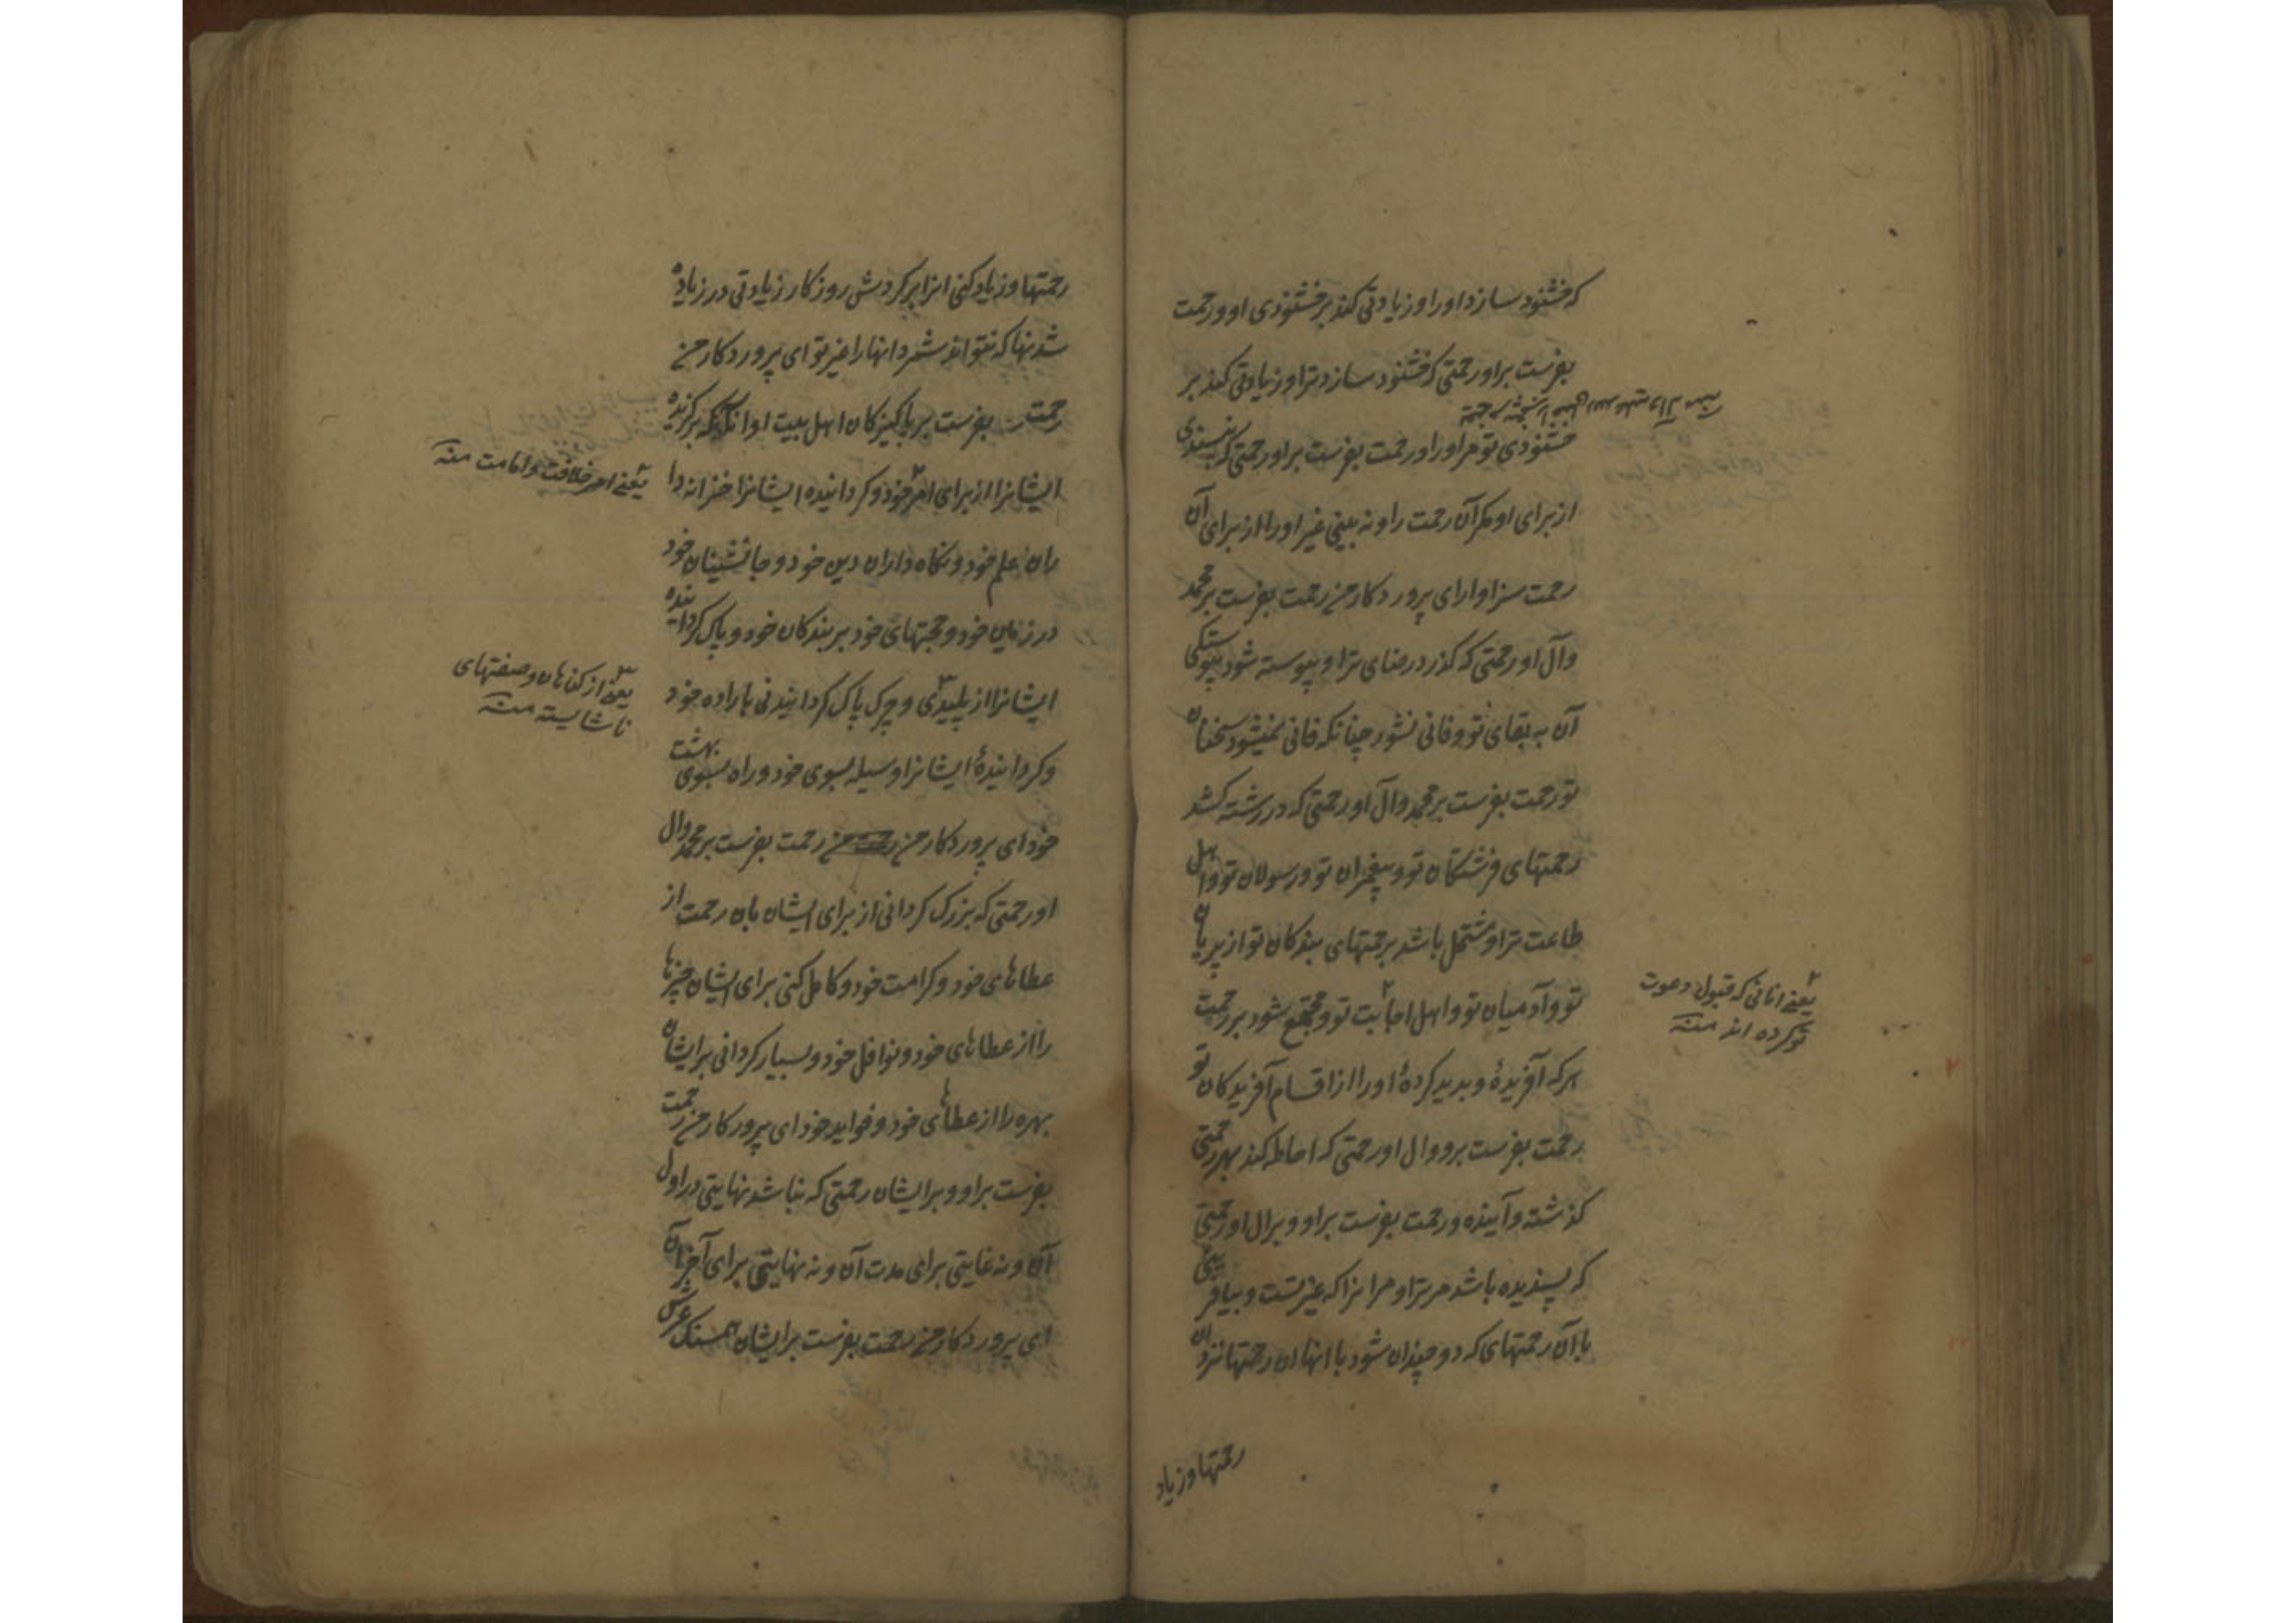 که خشنود سازد اورا و زیادتی کند بر خشنودی او و رحمت
بفرست براو رحمتی که خشنود سازد ترا و زیادتی کند بر
خشنودی تو مر اورا و رحمت بفرست براو رحمتی که نپسندی
از برای او مگر آن رحمت را و نه بینی غیر اورا از برای آن
رحمت سزاوار ای پروردکار من رحمت بفرست بر محمد
وآل او رحمتی که کذرد رضای ترا و پیوسته شود پیوستکی
آن به بقای تو و فانی نشود چنانکه فانی نمیشود سخنان
تو رحمت بفرست بر محمد وآل او رحمتی که در رشته کشد
رحمتهای فرشتکان تو و پیغمبران تو و رسولان تو و اهل
طاعت ترا و مشتمل باشد بر رحمتهای بندکان تو از پریان
تو و آدمیان تو و اهل اجابت تو و مجتمع شود بر رحمت
هرکه آفریدهٔ و پدید کردهٔ اورا از اقسام آفریدکان تو
رحمت بفرست برو وال او رحمتی که احاطه کند بهر رحمتی
کذشته و آینده و رحمت بفرست براو و برال او رحمتی
که پسندیده باشد مر ترا و مر انرا که غیر تست و بیافرینی
با آن رحمتهای که دو چندان شود با انها ان رحمتها نزد ان
یعنی انانی که قبول دعوت
تو کرده اند منه
رحمتها و زیاد
رحمتها و زیاد کنی انرا بر کردش روزکار زیادتی در زیاده
شدنها که نتواند شمرد انها را غیر تو ای پروردکار من
رحمت بفرست بر پاکیزکان اهل بیت او انانکه برکزیده
ایشانرا از برای امر خود و کردانیده ایشانرا خزانه دا
ران علم خود و نکاه داران دین خود و جانشینان خود
در زمین خود و حجتهای خود بر بندکان خود و پاک کردانیده
ایشانرا از پلیدی و چرک پاک کردانیدنی باراده خود
و کردانیدهٔ ایشانرا وسیله بسوی خود و راه بسوی بهشت
خود ای پروردکار من رحمت من رحمت بفرست بر محمد وال
او رحمتی که بزرک کردانی از برای ایشان بان رحمت از
عطاهای خود و کرامت خود و کامل کنی برای ایشان چیزها
را از عطاهای خود و نوافل خود و بسیار کردانی بر ایشان
بهره را از عطاهای خود و فواید خود ای پرورکار من رحمت
بفرست براو و بر ایشان رحمتی که نباشد نهایتی در اول
آن و نه غایتی برای مدت آن و نه نهایتی برای آخر آن
ای پروردکار من رحمت بفرست بر ایشان همسنک عرش
یعنی امر خلافت و امامت منه
یعنی از کناهان و صفتهای
ناشایسته منه